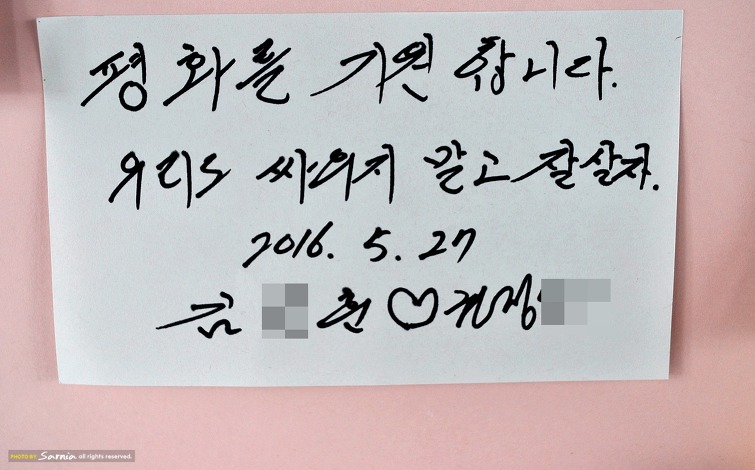 평화를 기원 합니다.
우리도 싸우지 말고 잘살자.
2016. 5. 27
금 헌♡권정
PHOTO BY Sarnia all rights reserved.